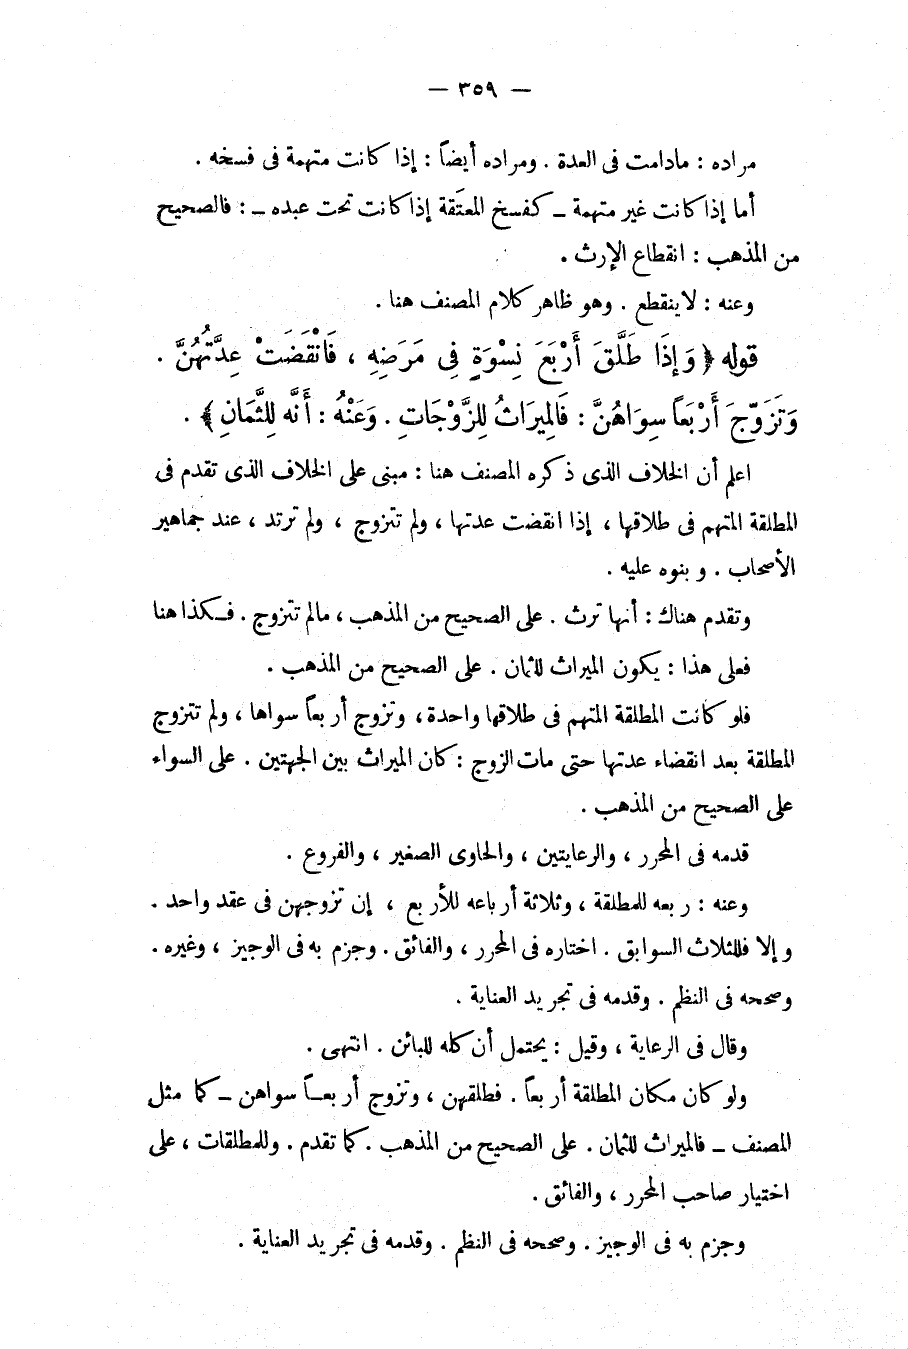 — ٣٥٩ —
مراده : مادامت فى العدة . ومراده أيضاً : إذا كانت متهمة فى فسخه .
أما إذا كانت غير متهمة ــ كفسخ المعتَقة إذا كانت تحت عبده ــ : فالصحيح
من المذهب : انقطاع الإرث .
وعنه : لا ينقطع . وهو ظاهر كلام المصنف هنا .
قوله ﴿ وَإِذَا طَلَّقَ أَرْبَعَ نِسْوَةٍ فِى مَرَضِهِ ، فَانْقَضَتْ عِدَّتُهُنَّ .
وَتَزَوَّجَ أَرْبَعاً سِوَاهُنَّ : فَالِميرَاثُ لِلزَّوْجَاتِ . وَعَنْهُ : أَنَّه لِلثَّمَانِ ﴾ .
اعلم أن الخلاف الذى ذكره المصنف هنا : مبنى على الخلاف الذى تقدم فى
المطلقة المتهم فى طلاقها ، إذا انقضت عدتها ، ولم تتزوج ، ولم ترتد ، عند جماهير
الأصحاب . وبنوه عليه .
وتقدم هناك : أنها ترث . على الصحيح من المذهب ، مالم تتزوج . فكذا هنا
فعلى هذا : يكون الميراث للثمان . على الصحيح من المذهب .
فلو كانت المطلقة المتهم فى طلاقها واحدة ، وتزوج أربعاً سواها ، ولم تتزوج
المطلقة بعد انقضاء عدتها حتى مات الزوج : كان الميراث بين الجهتين . على السواء
على الصحيح من المذهب .
قدمه فى المحرر ، والرعايتين ، والحاوى الصغير ، والفروع .
وعنه : ربعه للمطلقة ، وثلاثة أرباعه للأربع ، إن تزوجهن فى عقد واحد .
وإلا فللثلاث السوابق . اختاره فى المحرر ، والفائق . وجزم به فى الوجيز ، وغيره .
وصححه فى النظم . وقدمه فى تجريد العناية .
وقال فى الرعاية ، وقيل : يحتمل أن كله للبائن . انتهى .
ولو كان مكان المطلقة أربعاً . فطلقهن ، وتزوج أربعـاً سواهن ــ كما مثل
المصنف ــ فالميراث للثمان . على الصحيح من المذهب . كما تقدم . وللمطلقات ، على
اختيار صاحب المحرر ، والفائق .
وجزم به فى الوجيز . وصححه فى النظم . وقدمه فى تجريد العناية .